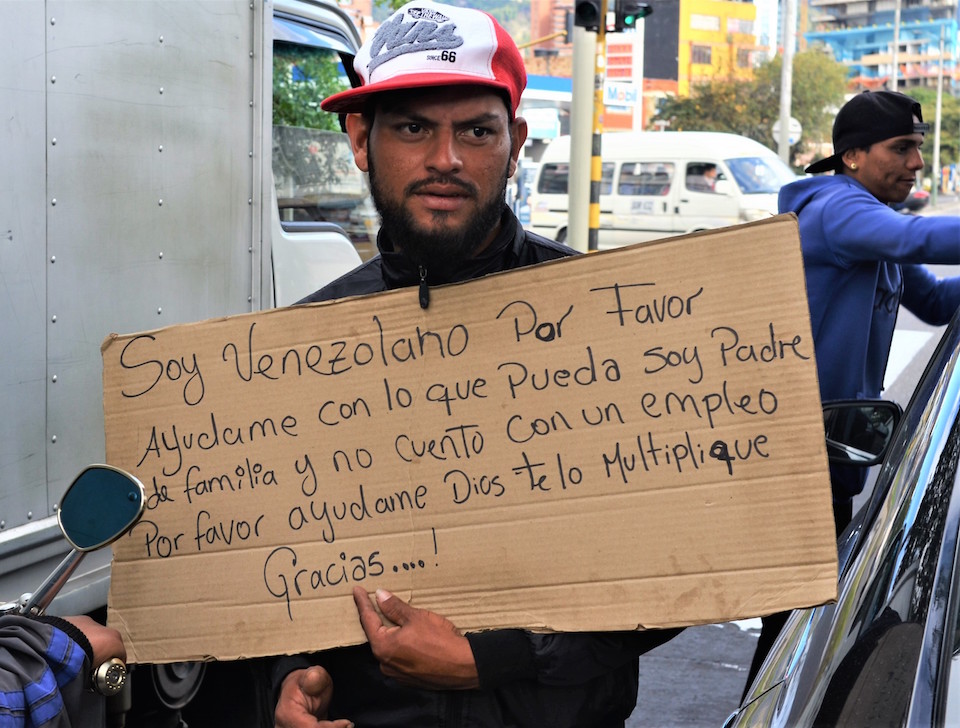 Vans
SINCE 66
Mobil
Soy Venezolano Por Favor
Ayudame con lo que Pueda soy Padre
de familia y no cuento con un empleo
Por favor ayudame Dios te lo Multiplique
Gracias....!